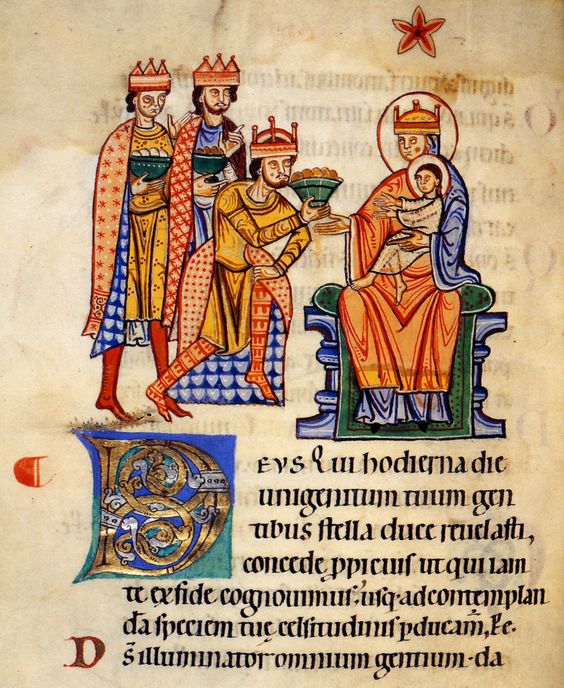 DEVS Qui hodierna die
unigenitum tuum gen
tibus stella duce reuelasti,
concede ppicius ut qui iam
te ex fide cognouimus. usq; ad contemplan
dā speciem tuę celsitudinis pducam̄,
D̄s illuminator omnium gentium. da